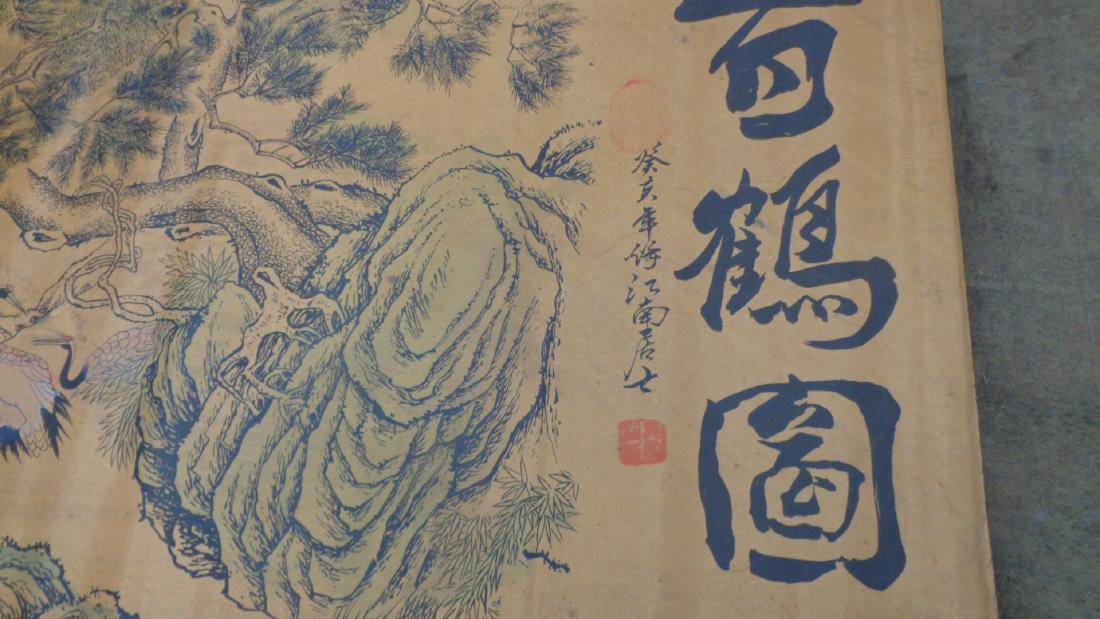 百鶴圖
癸亥年仿江南居士